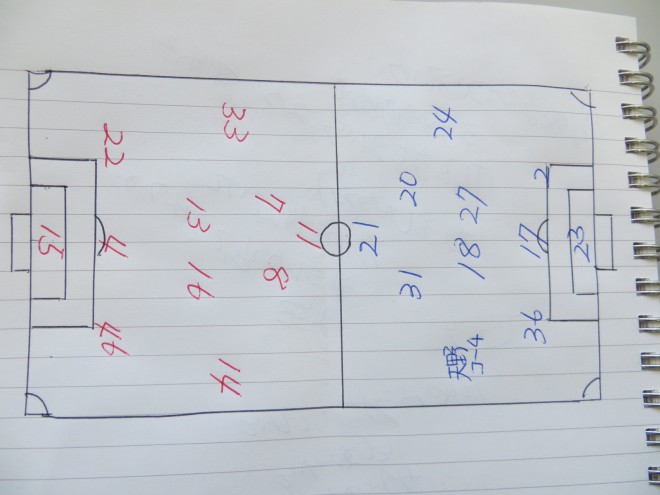 33
22
7
13
11
15
4
16
8
46
14
24
2
20
27
21
17
23
18
31
36
天野